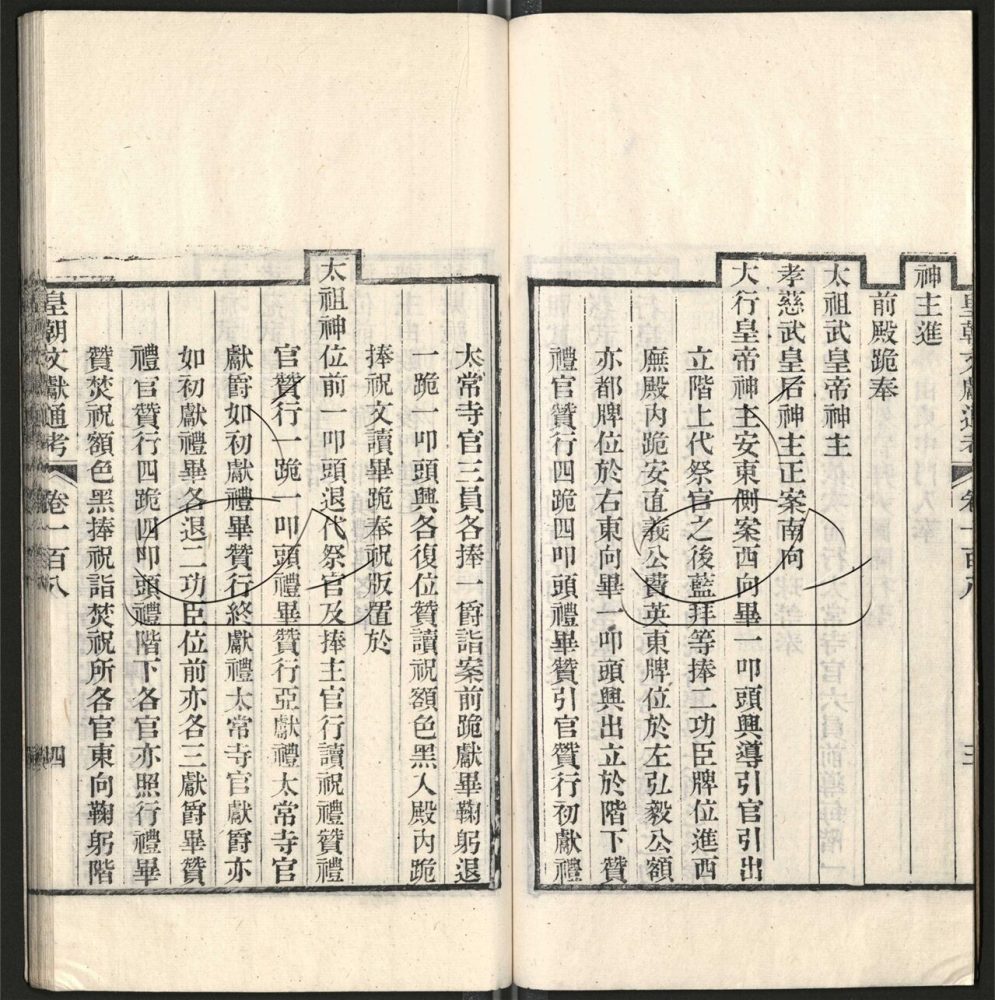 皇朝文獻通考 卷一百八 三
神主進
前殿跪奉
太祖武皇帝神主
孝慈武皇后神主正案南向
大行皇帝神主安東側案西向畢一叩頭興導引官引出
立階上代祭官之後藍拜等捧二功臣牌位進西
廡殿内跪安直義公費英東牌位於左弘毅公額
亦都牌位於右東向畢一叩頭興出立於階下贊
禮官贊行四跪四叩頭禮畢贊引官贊行初獻禮
太常寺官三員各捧一爵詣案前跪獻畢鞠躬退
一跪一叩頭興各復位贊讀祝額色黑入殿内跪
捧祝文讀畢跪奉祝版置於
太祖神位前一叩頭退代祭官及捧主官行讀祝禮贊禮
官贊行一跪一叩頭禮畢贊行亞獻禮太常寺官
獻爵如初獻禮畢贊行終獻禮太常寺官獻爵亦
如初獻禮畢各退二功臣位前亦各三獻爵畢贊
禮官贊行四跪四叩頭禮階下各官亦照行禮畢
贊焚祝額色黑捧祝詣焚祝所各官東向鞠躬階
皇朝文獻通考 卷一百八 四